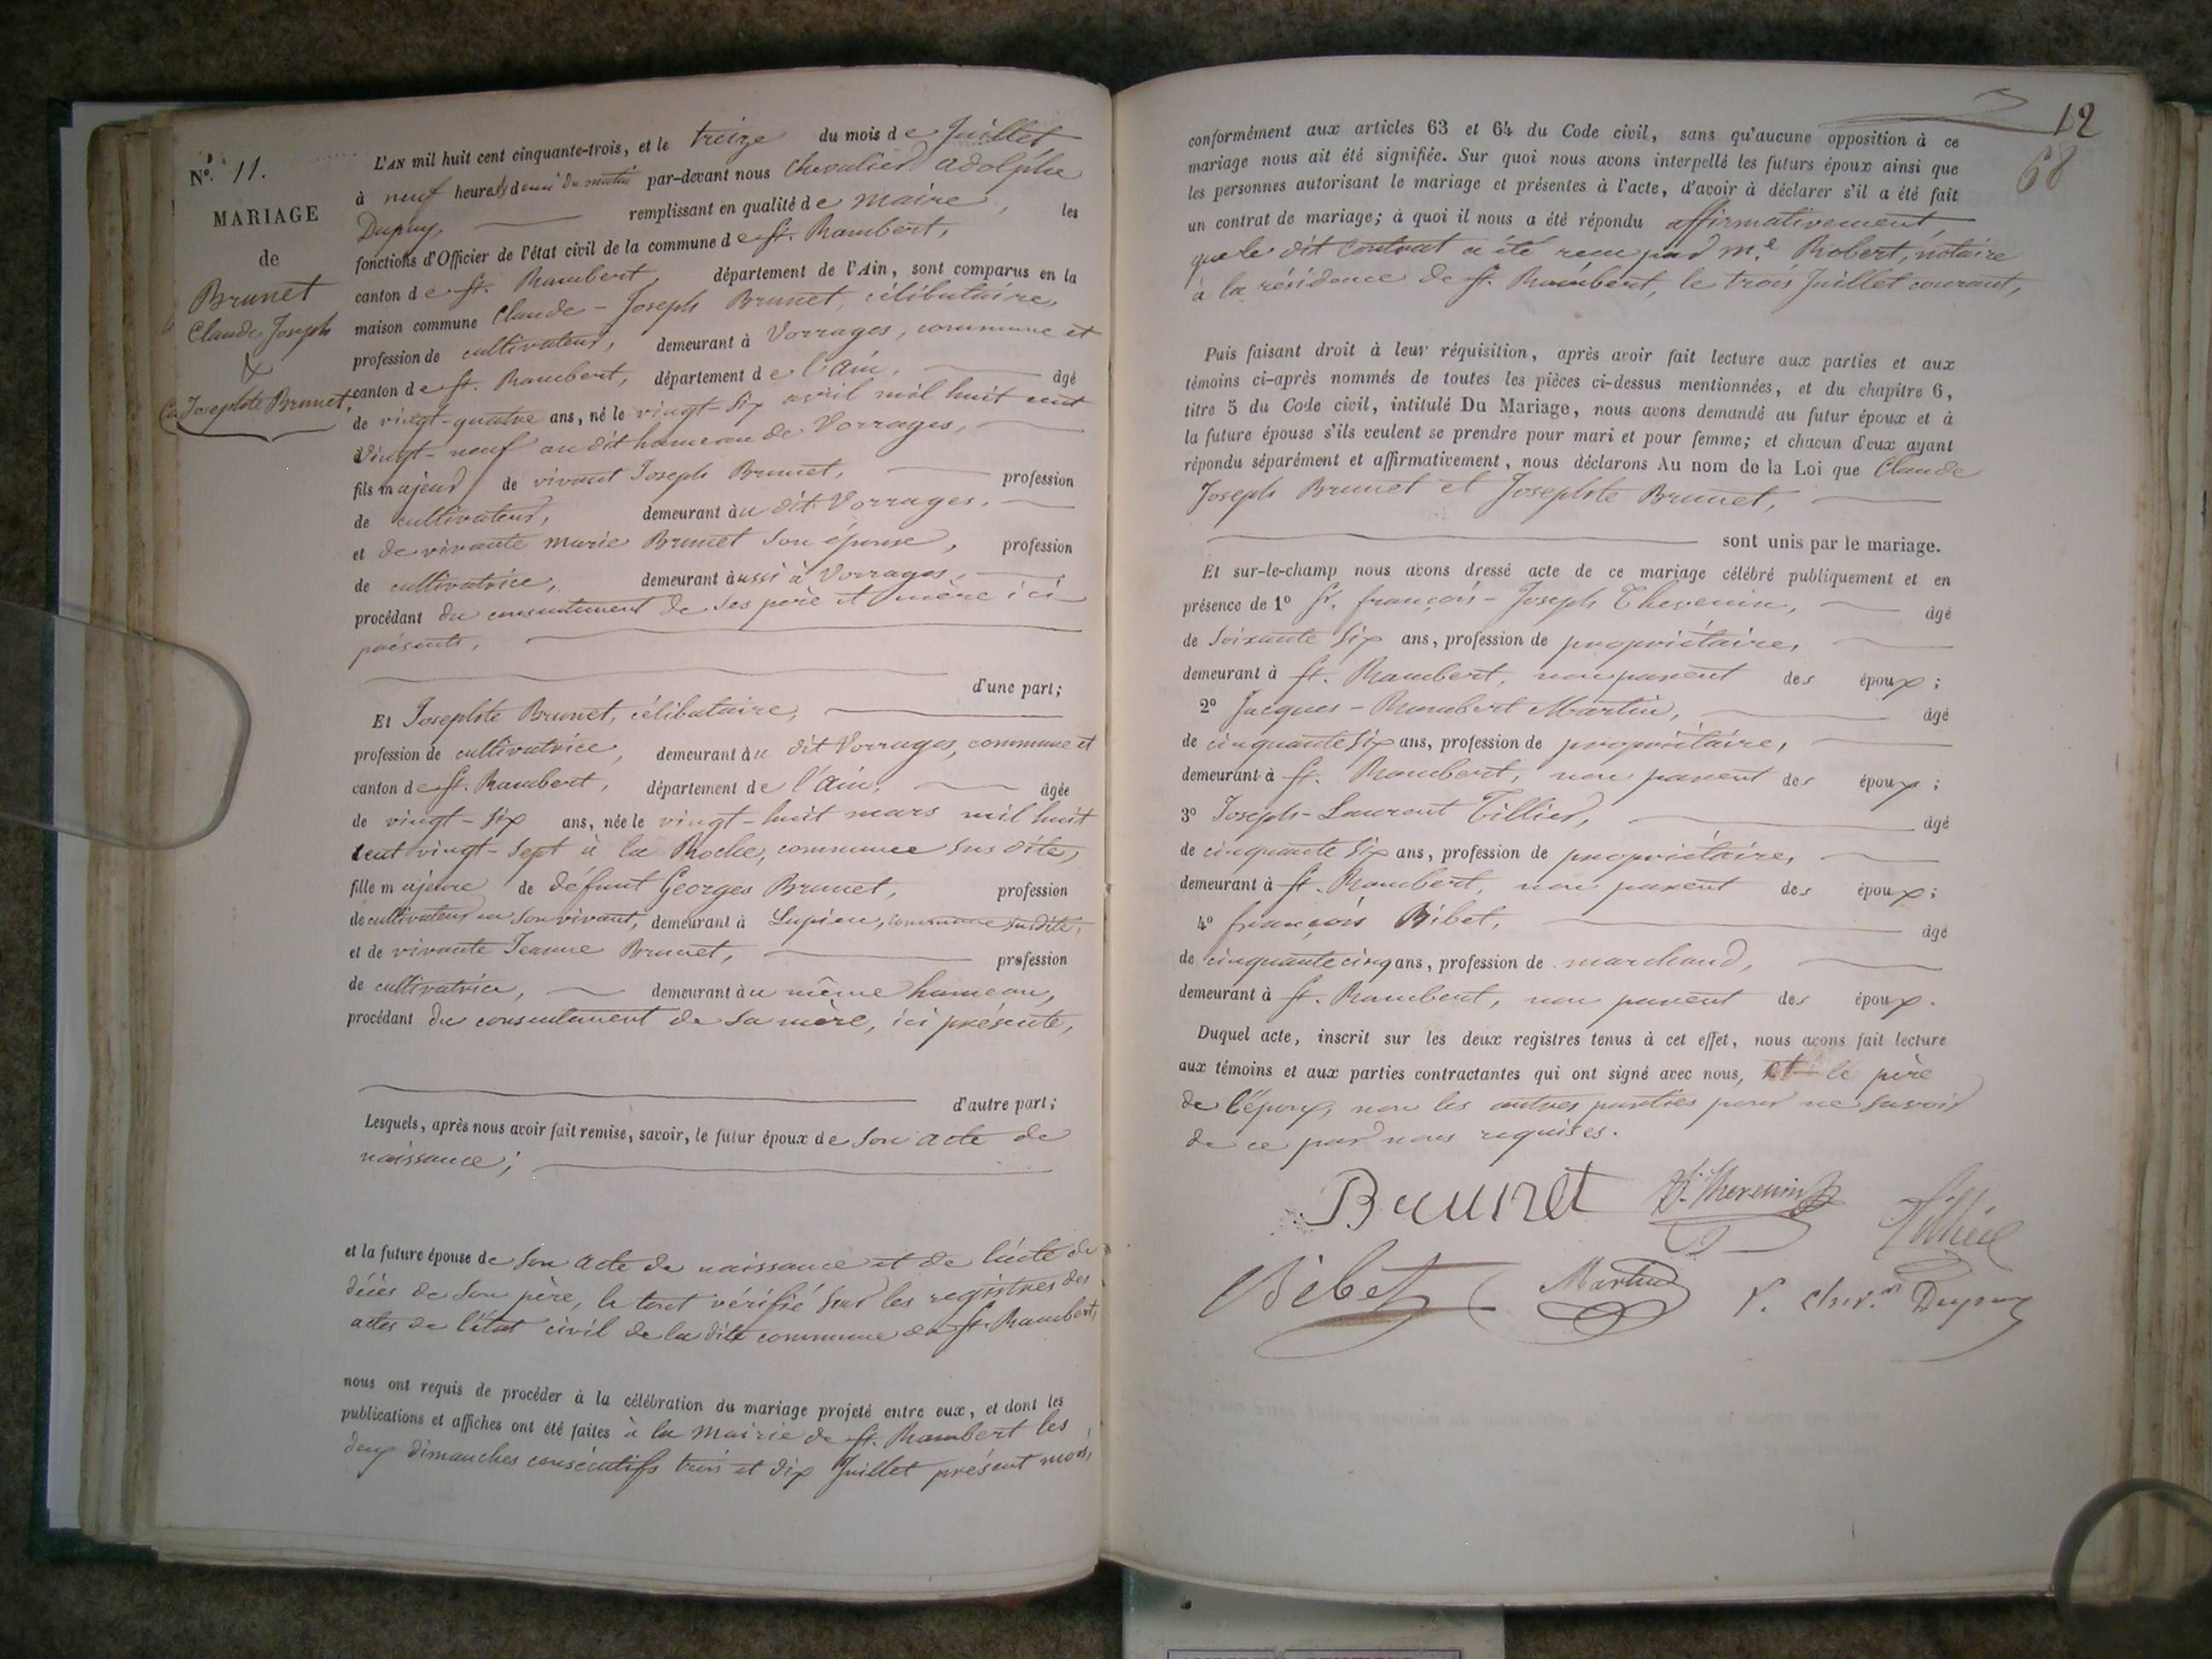 N°. 11.
MARIAGE
de
Brunet
Claude Joseph
&
Josephte Brunet,
L'AN mil huit cent cinquante-trois, et le treize du mois de Juillet,
à neuf heures & demi du matin par-devant nous Chevalier Adolphe
Dupuy, remplissant en qualité de maire, les
fonctions d'Officier de l'état civil de la commune de St. Rambert,
canton de St. Rambert, département de l'Ain, sont comparus en la
maison commune Claude-Joseph Brunet, célibataire,
profession de cultivateur, demeurant à Vorrages, commune et
canton de St. Rambert, département de l'Ain, âgé
de vingt-quatre ans, né le vingt-six avril mil huit cent
vingt-neuf au dit hameau de Vorrages,
fils majeur de vivant Joseph Brunet, profession
de cultivateur, demeurant au dit Vorrages,
et de vivante marie Brunet son épouse, profession
de cultivatrice, demeurant aussi à Vorrages,
procédant du consentement de ses père et mère ici
présents,
d'une part;
Et Josephte Brunet, célibataire,
profession de cultivatrice, demeurant au dit Vorrages, commune et
canton de St. Rambert, département de l'Ain, âgée
de vingt-six ans, née le vingt-huit mars mil huit
cent vingt-sept à la Roche, commune sus dite,
fille majeure de défunt Georges Brunet, profession
de cultivateur en son vivant, demeurant à Lupieu, commune susdite,
et de vivante Jeanne Brunet, profession
de cultivatrice, demeurant au même hameau,
procédant du consentement de sa mère, ici présente,
d'autre part;
Lesquels, après nous avoir fait remise, savoir, le futur époux de son acte de
naissance;
et la future épouse de son acte de naissance et de l'acte de
décès de son père, le tout vérifié sur les registres des
actes de l'état civil de la dite commune de St. Rambert,
nous ont requis de procéder à la célébration du mariage projeté entre eux, et dont les
publications et affiches ont été faites à la mairie de St. Rambert les
deux dimanches consécutifs trois et dix Juillet présent mois,
12
68
conformément aux articles 63 et 64 du Code civil, sans qu'aucune opposition à ce
mariage nous ait été signifiée. Sur quoi nous avons interpellé les futurs époux ainsi que
les personnes autorisant le mariage et présentes à l'acte, d'avoir à déclarer s'il a été fait
un contrat de mariage; à quoi il nous a été répondu affirmativement
que le dit contrat a été recu par Me. Robert, notaire
à la résidence de St. Rambert, le trois Juillet courant,
Puis faisant droit à leur réquisition, après avoir fait lecture aux parties et aux
témoins ci-après nommés de toutes les pièces ci-dessus mentionnées, et du chapitre 6,
titre 5 du Code civil, intitulé Du Mariage, nous avons demandé au futur époux et à
la future épouse s'ils veulent se prendre pour mari et pour femme; et chacun d'eux ayant
répondu séparément et affirmativement, nous déclarons Au nom de la Loi que Claude
Joseph Brunet et Josephte Brunet,
sont unis par le mariage.
Et sur-le-champ nous avons dressé acte de ce mariage célébré publiquement et en
présence de 1° Sr. françois-Joseph Thevenin, âgé
de soixante six ans, profession de propriétaire,
demeurant à St. Rambert, non parent des époux;
2° Jacques-Rambert Martin, âgé
de cinquante six ans, profession de propriétaire,
demeurant à St. Rambert, non parent des époux;
3° Joseph-Laurent Tillier, âgé
de cinquante six ans, profession de propriétaire,
demeurant à St. Rambert, non parent des époux;
4° françois Bibet, âgé
de cinquante cinq ans, profession de marchand,
demeurant à St. Rambert, non parent des époux.
Duquel acte, inscrit sur les deux registres tenus à cet effet, nous avons fait lecture
aux témoins et aux parties contractantes qui ont signé avec nous, et le père
de l'époux, non les autres parties pour ne savoir
de ce par nous requises.
Brunet
Thevenin
Tillier
Bibet
Martin
Dupuy